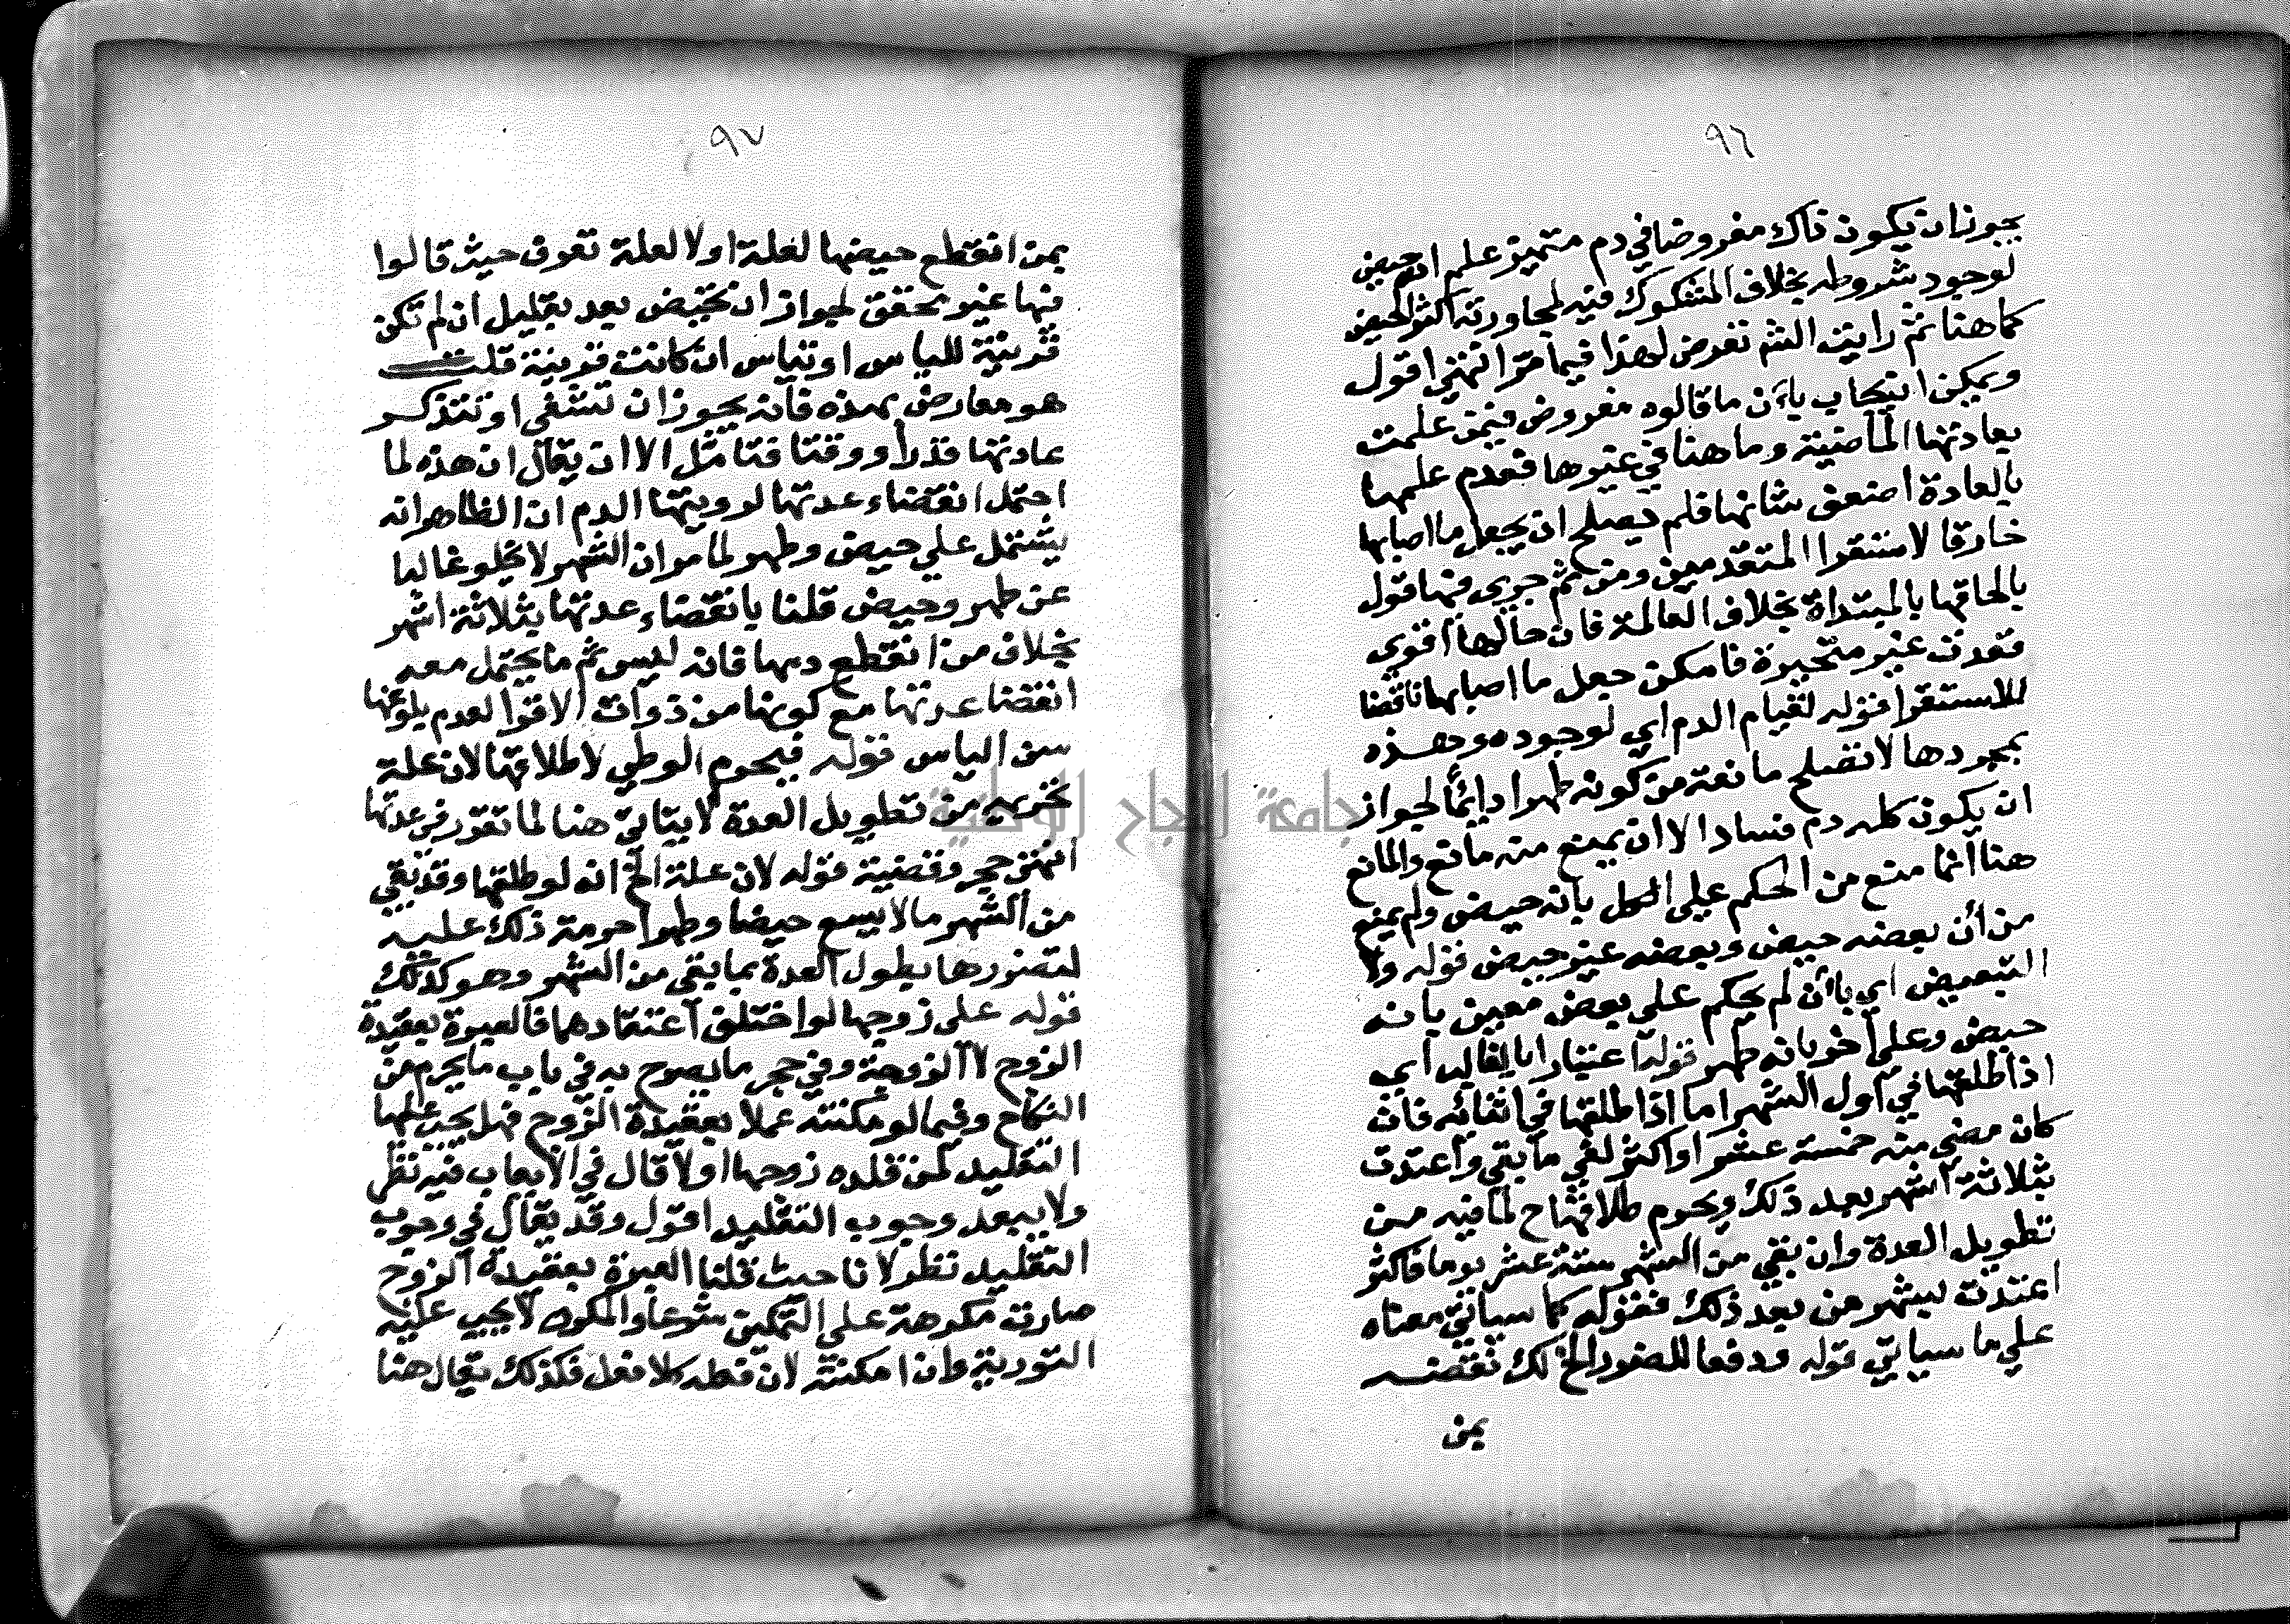 ٩٦
يجوز ان يكون ذاك مفروضا في دم متميز علم انه حيض
لوجود شروطه بخلاف المشكوك فيه لمجاورته اكثر الحيض
كما هنا ثم رايت الشم تعرض لهذا فيما مر انتهى اقول
ويمكن ان يجاب بأن ما قالوه مفروض فيمن علمت
بعادتها الماضية وما هنا في غيرها فعدم علمها
بالعادة اضعف شانها فلم يصلح ان يجعل ما اصابها
خارقا لاستقرا المتقدمين ومن ثم جرى فيها قول
بالحاقها بالمبتداة بخلاف العالمة فان حالها اقوى
فعدت غير متحيرة فامكن جعل ما اصابها ناقضا
للاستقرا قوله لقيام الدم اي لوجوده وهذه
بمجردها لا تصلح مانعة من كونه طهرا دائما لجواز
ان يكون كله دم فساد الا ان يمنع منه مانع والمانع
هنا انما منع من الحكم على الكل بانه حيض ولم يمنع
من أن بعضه حيض وبعضه غير حيض قوله ولا
التبعيض اي بأن لم يحكم على بعض معين بانه
حيض وعلى اخر بانه طهر قوله اعتبارا بالغالب اي
اذا طلقها في اول الشهر اما اذا طلقها في اثنائه فان
كان مضى منه خمسة عشر او اكثر لغي ما بقي واعتدت
بثلاثة اشهر بعد ذلك ويحرم طلاقها ح لما فيه من
تطويل العدة وان بقي من الشهر ستة عشر يوما فاكثر
اعتدت بشهرين بعد ذلك فقوله كما سياتي معناه
على ما سياتي قوله ودفعا للضرر الخ لك نقضه
يمن
٩٧
يمن انقطع حيضها لعلة او لا لعلة تعرف حيث قالوا
فيها غير محقق لجواز ان تحيض بعد بقليل ان لم تكن
قريبة للياس او تياس ان كانت قريبة قلت
هو معارض بهذه فانه يجوز ان تشفى او تتذكر
عادتها قدرا ووقتا فتامل الا ان يقال ان هذه لما
احتمل انقضاء عدتها لرويتها الدم ان الظاهر انه
يشتمل علي حيض وطهر لما مر ان الشهر لا يخلو غالبا
عن طهر وحيض قلنا بانقضاء عدتها بثلاثة اشهر
بخلاف من انقطع دمها فانه ليس ثم ما يحتمل معه
انقضا عدتها مع كونها من ذوات الاقرا لعدم بلوغها
سن الياس قوله فيحرم الوطي لا طلاقها لان علة
تحريمه من تطويل العدة لا يتاتى هنا لما تقرر في عدتها
انتهى حجر وقضية قوله لان علة الخ انه لو طلقها وقد بقي
من الشهر ما لا يسع حيضا وطهرا حرمة ذلك عليه
لتضررها بطول العدة بما بقي من الشهر وهو كذلك
قوله على زوجها لو اختلف اعتقادهما فالعبرة بعقيدة
الزوج لا الزوجة وفي حجر ما يصرح به في باب ما يحرم من
النكاح وفيما لو مكنته عملا بعقيدة الزوج فهل يجب عليها
التقليد لمن قلده زوجها او لا قال في الايعاب فيه نظر
ولا يبعد وجوب التقليد اقول وقد يقال في وجوب
التقليد نظر لانا حيث قلنا العبرة بعقيدة الزوج
صارت مكرهة على التمكين شرعا والمكره لا يجب عليه
التورية وان امكنته لان فعله كلا فعل فكذلك يقال هنا